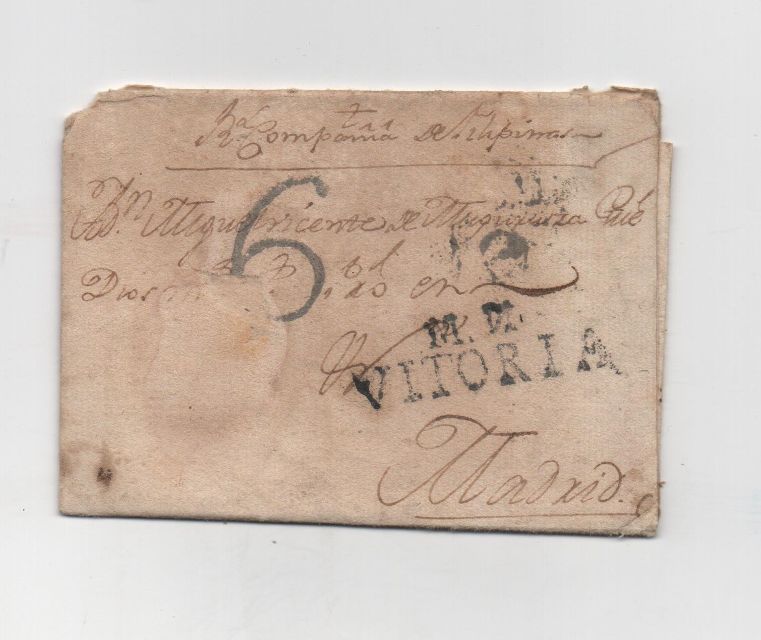 Rl Compañia de Filipinas
Dn Miguel Vicente de Muguiruza que
Dios
6
en
M. M.
VITORIA
Madrid.